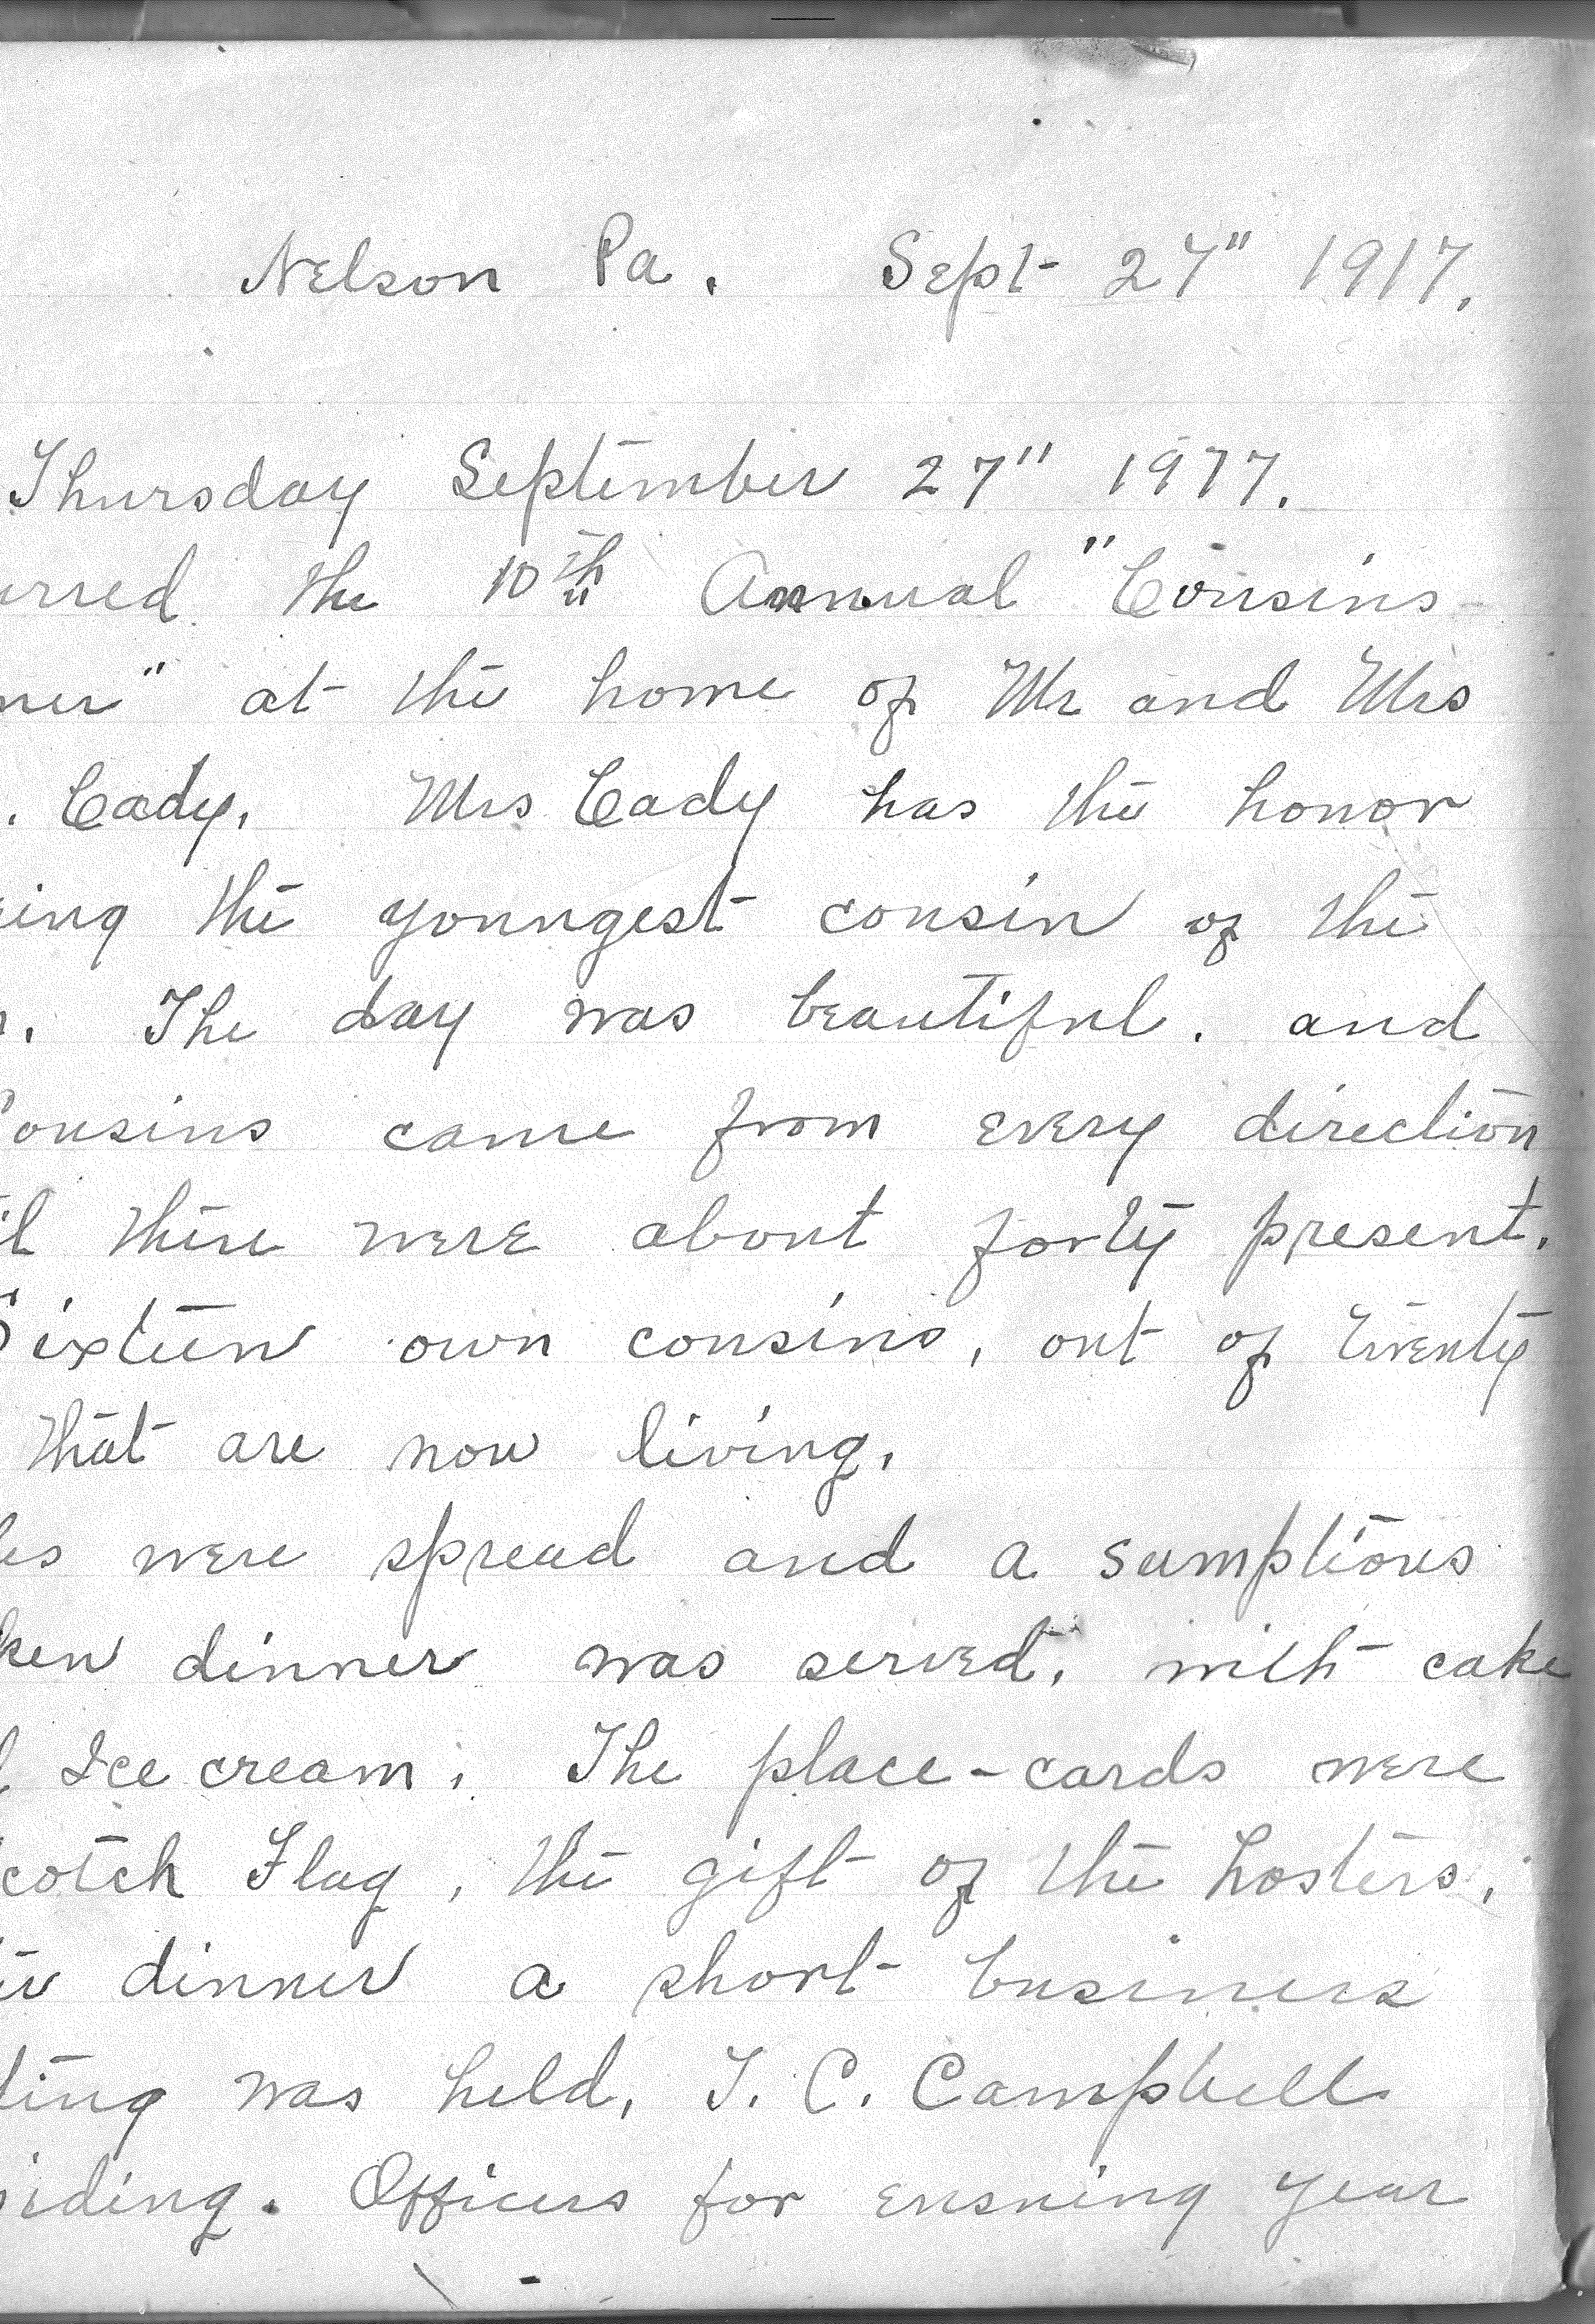 Nelson Pa. Sept 27" 1917.
Thursday September 27" 1917.
urred the 10th Annual "Cousins
ner" at the home of Mr and Mrs
. Cady. Mrs Cady has the honor
eing the youngest cousin of the
. The day was beautiful. and
Cousins came from every direction
il there were about forty present.
Sixteen own cousins, out of twenty
that are now living.
les were spread and a sumptious
ken dinner was served, with cake
d Ice cream. The place-cards were
cotch Flag, the gift of the hosters.
er dinner a short business
ting was held, T. C. Campbell
siding. Officers for ensuing year